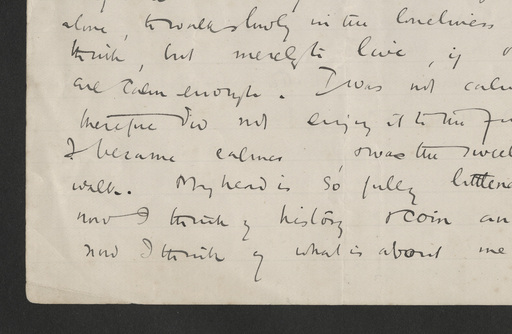 alone, to walk slowly in the loneliness
think, but merely to live, if
are calm enough. I was not calm
therefore did not enjoy it to the fu
I became calmer, & was the sweet
walk. My head is so fully
now I think of history & coin an
now I think of what is about me